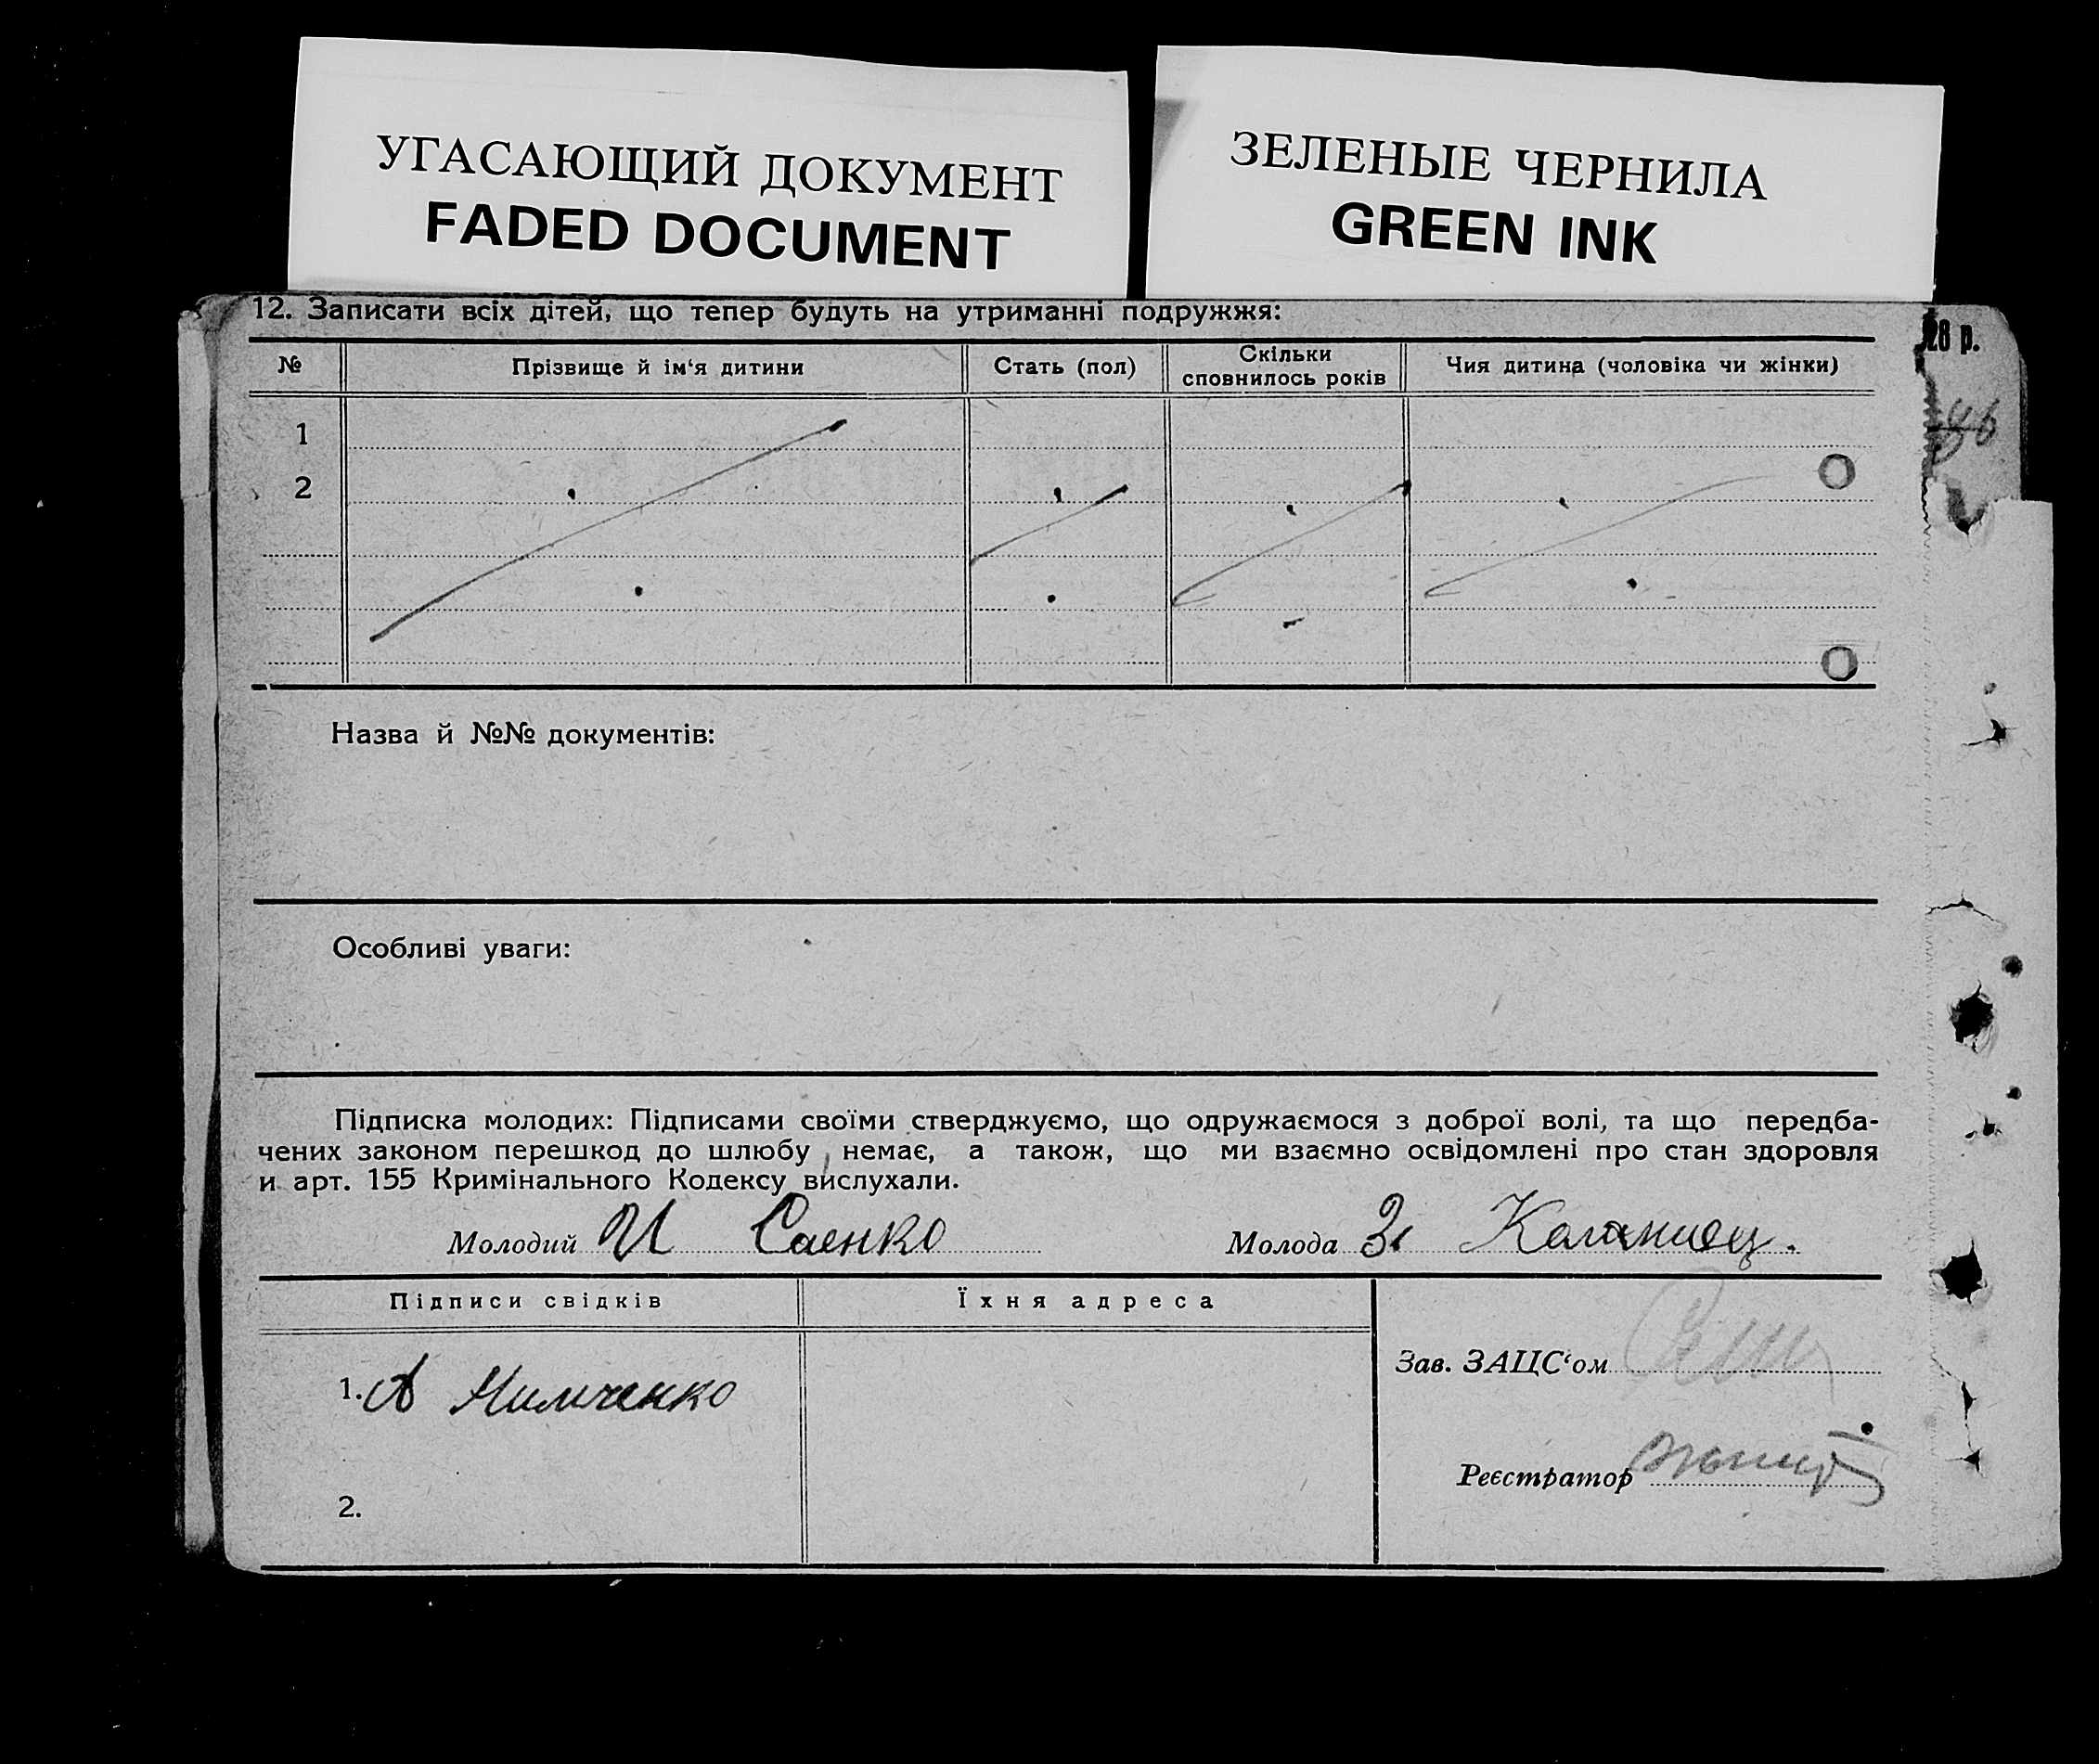 УГАСАЮЩИЙ ДОКУМЕНТ
FADED DOCUMENT
ЗЕЛЕНЫЕ ЧЕРНИЛА
GREEN INK
12. Записати всіх дітей, що тепер будуть на утриманні подружжя:
28 р.
№ Прізвище й ім‘я дитини Стать (пол) Скільки сповнилось років Чия дитина (чоловіка чи жінки)
1
2
Назва й №№ документів:
Особливі уваги:
Підписка молодих: Підписами своїми стверджуємо, що одружаємося з доброї волі, та що передба-
чених законом перешкод до шлюбу немає, а також, що ми взаємно освідомлені про стан здоровля
и арт. 155 Кримінального Кодексу вислухали.
Молодий И Саенко Молода З
Підписи свідків Їхня адреса
Зав. ЗАЦС‘ом
1. А Нимченко
Реєстратор
2.